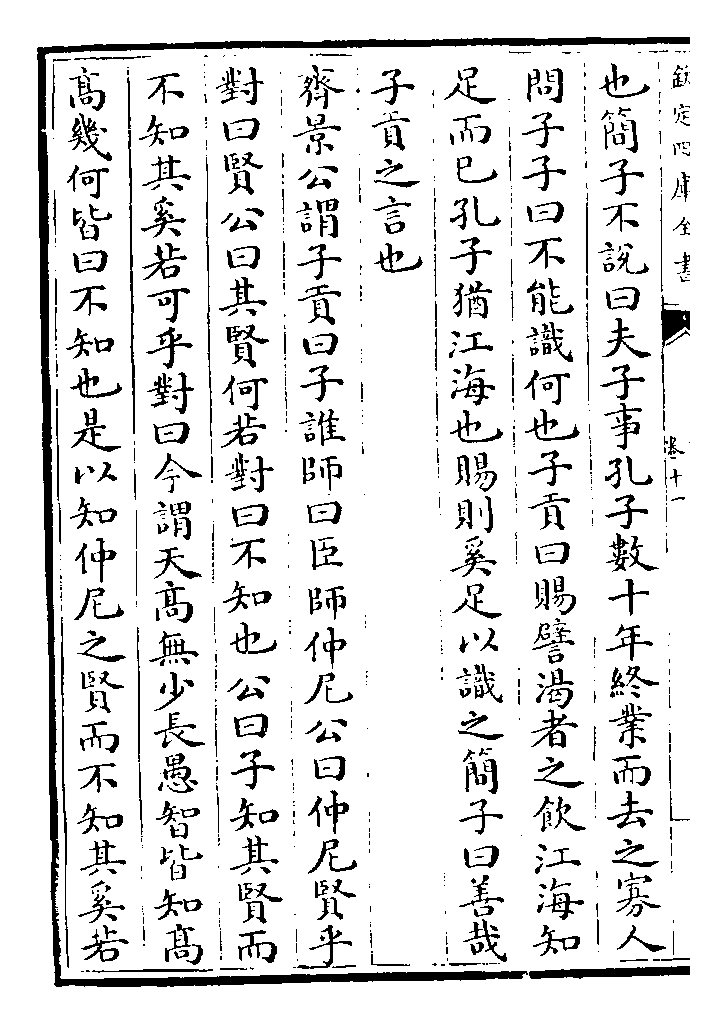 欽定四庫全書
卷十一
也簡子不說曰夫子事孔子數十年終業而去之寡人
問子子曰不能識何也子貢曰賜譬渴者之飲江海知
足而已孔子猶江海也賜則奚足以識之簡子曰善哉
子貢之言也
齊景公謂子貢曰子誰師曰臣師仲尼公曰仲尼賢乎
對曰賢公曰其賢何若對曰不知也公曰子知其賢而
不知其奚若可乎對曰今謂天髙無少長愚智皆知髙
髙幾何皆曰不知也是以知仲尼之賢而不知其奚若